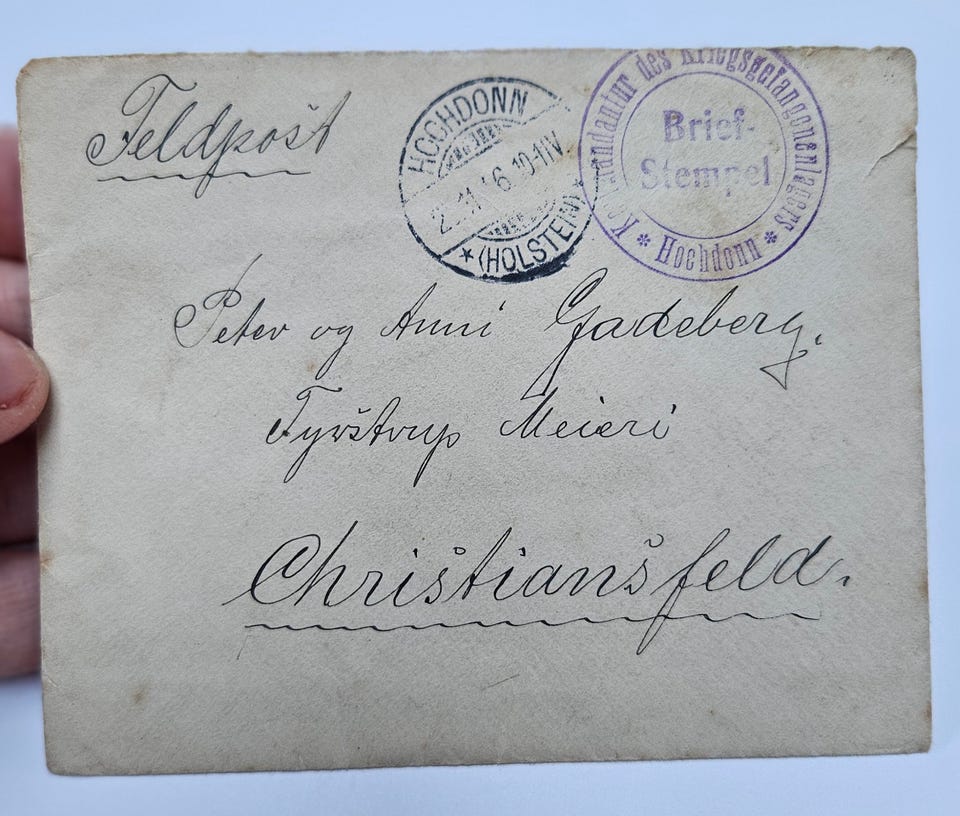 Feldpost
HOCHDONN
11. 16. 10-11V
* (HOLSTEIN) *
Kommandantur des Kriegsgefangenenlagers
* Hochdonn *
Brief-
Stempel
Peter og Anni Gadeberg.
Tyrstrup Meieri
Christiansfeld.